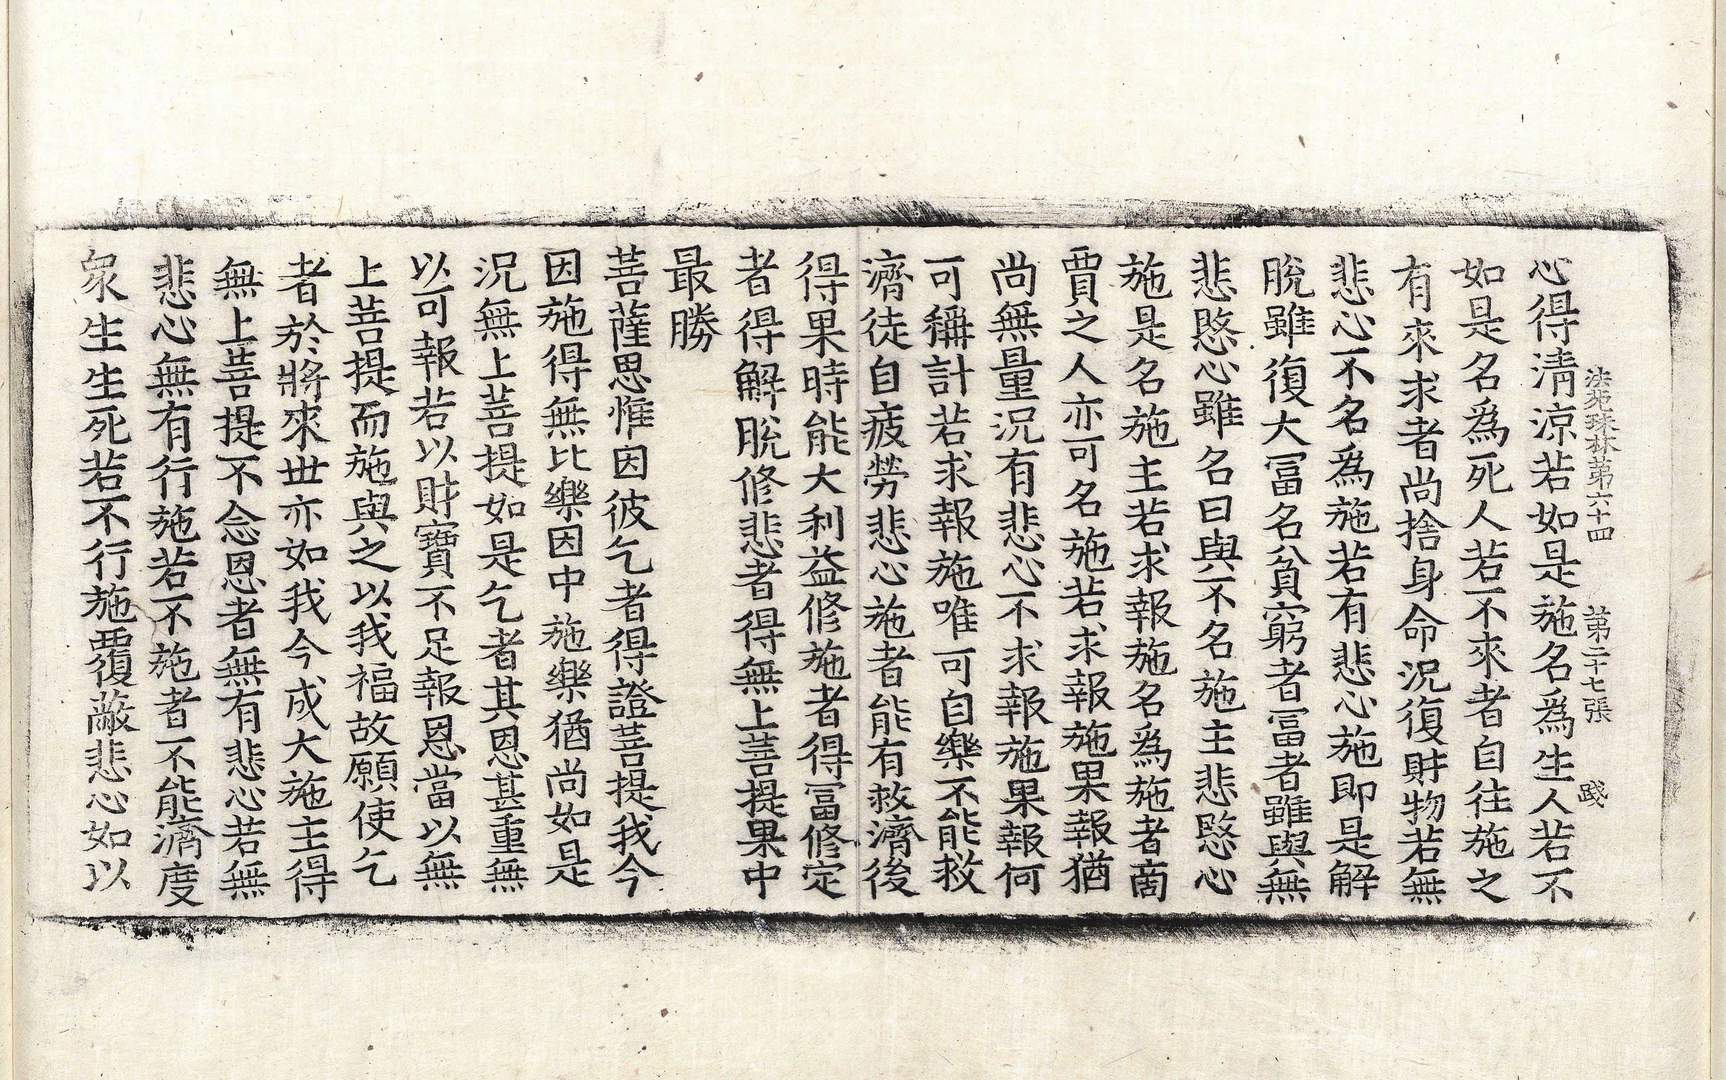 法苑珠林第六十四　第二十七張　踐
心得清涼若如是施名爲生人若不
如是名爲死人若不來者自往施之
有來求者尚捨身命況復財物若無
悲心不名爲施若有悲心施即是解
脫雖復大冨名貧窮者冨者雖與無
悲愍心雖名曰與不名施主悲愍心
施是名施主若求報施名爲施者商
賈之人亦可名施若求報施果報猶
尚無量況有悲心不求報施果報何
可稱計若求報施唯可自樂不能救
濟徒自疲勞悲心施者能有救濟後
得果時能大利益修施者得冨修定
者得解脫修悲者得無上菩提果中
最勝
菩薩思惟因彼乞者得證菩提我今
因施得無比樂因中施樂猶尚如是
況無上菩提如是乞者其恩甚重無
以可報若以財寶不足報恩當以無
上菩提而施與之以我福故願使乞
者於將來世亦如我今成大施主得
無上菩提不念恩者無有悲心若無
悲心無有行施若不施者不能濟度
衆生生死若不行施覆蔽悲心如以